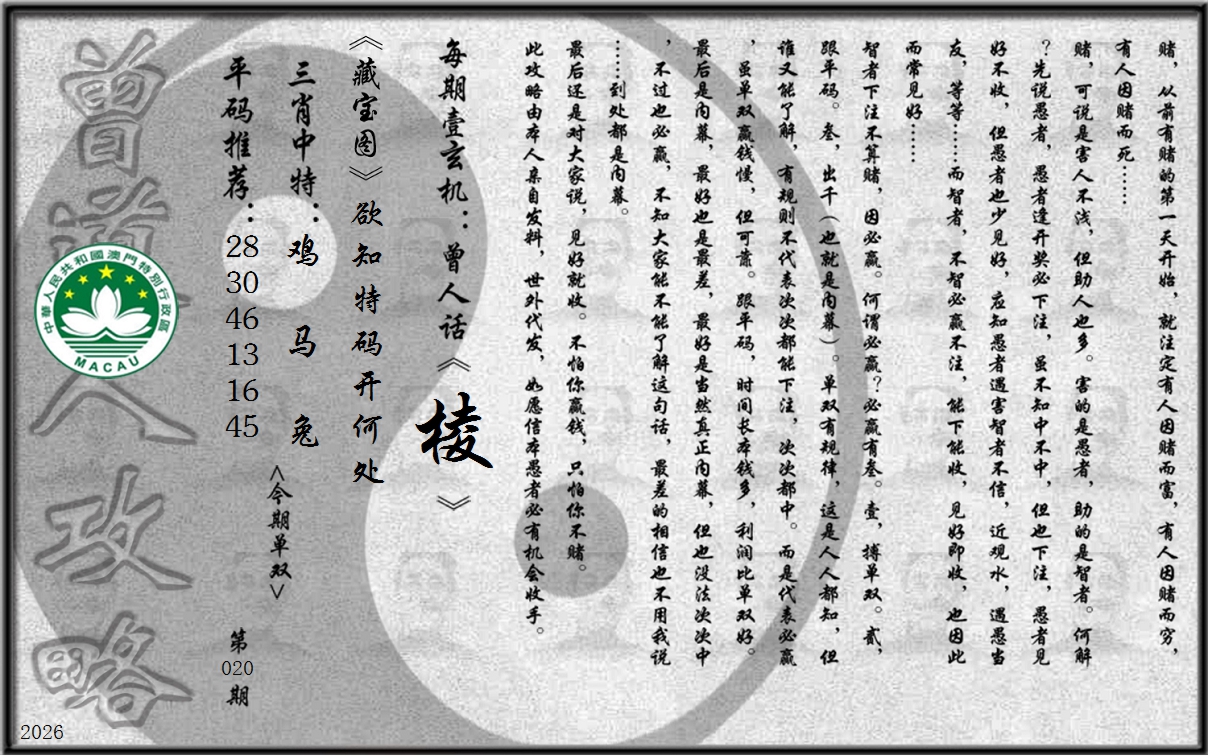 赌，从前有赌的第一天开始，就注定有人因赌而富，有人因赌而穷，
有人因赌而死……
赌，可说是害人不浅，但助人也多。害的是愚者，助的是智者。何解
？先说愚者，愚者逢开奖必下注，虽不知中不中，但也下注，愚者见
好不收，但愚者也少见好，应知愚者遇害智者不信，近观水，遇愚当
友，等等……而智者，不智必赢不注，能下能收，见好即收，也因此
而常见好……
智者下注不算赌，因必赢。何谓必赢？必赢有叁。壹，搏单双。贰，
跟平码。叁，出千（也就是内幕）。单双有规律，这是人人都知，但
谁又能了解，有规则不代表次次都能下注，次次都中。而是代表必赢
，虽单双赢钱慢，但可靠。跟平码，时间长本钱多，利润比单双好。
最后是内幕，最好也是最差，最好是当然真正内幕，但也没法次次中
，不过也必赢，不知大家能不能了解这句话，最差的相信也不用我说
……到处都是内幕。
最后还是对大家说，见好就收。不怕你赢钱，只怕你不赌。
此攻略由本人亲自发料，世外代发，如愿信本愚者必有机会收手。
每期壹玄机：曾人话《棱》
《藏宝图》欲知特码开何处
三肖中特：鸡 马 兔
<今期单双>
平码推荐：28 30 46 13 16 45
第020期
曾道人攻略
中華人民共和國澳門特別行政區
MACAU
2026